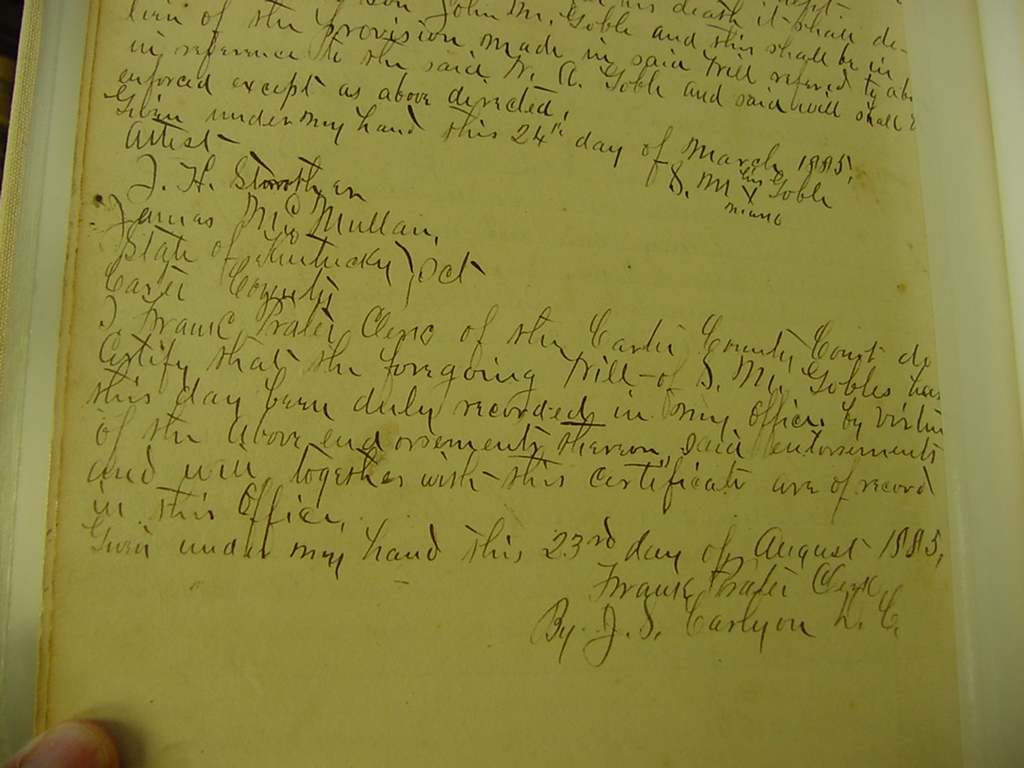 his death it shall de-
son John M. Goble and this shall be in
lieu of the provision made in said Will refered to abo
in reference to the said W. A. Goble and said will shall
enforced except as above directed,
Given under my hand this 24th day of March 1885,
Attest
S. M his X mark Goble
J. H.
James McMullan,
State of Kentucky } Sct
Carter County
I, Frank Prater Clerk of the Carter County Court do
Certify that the foregoing Will of S. M. Gobles has
this day been duly recorded in my office by virtue
of the above endorsements thereon, said endorsements
and will together with this Certificate are of record
in this Office,
Given under my hand this 23rd day of August 1885,
Frank Prater Clerk,
By J. S. Carlyon D. C.